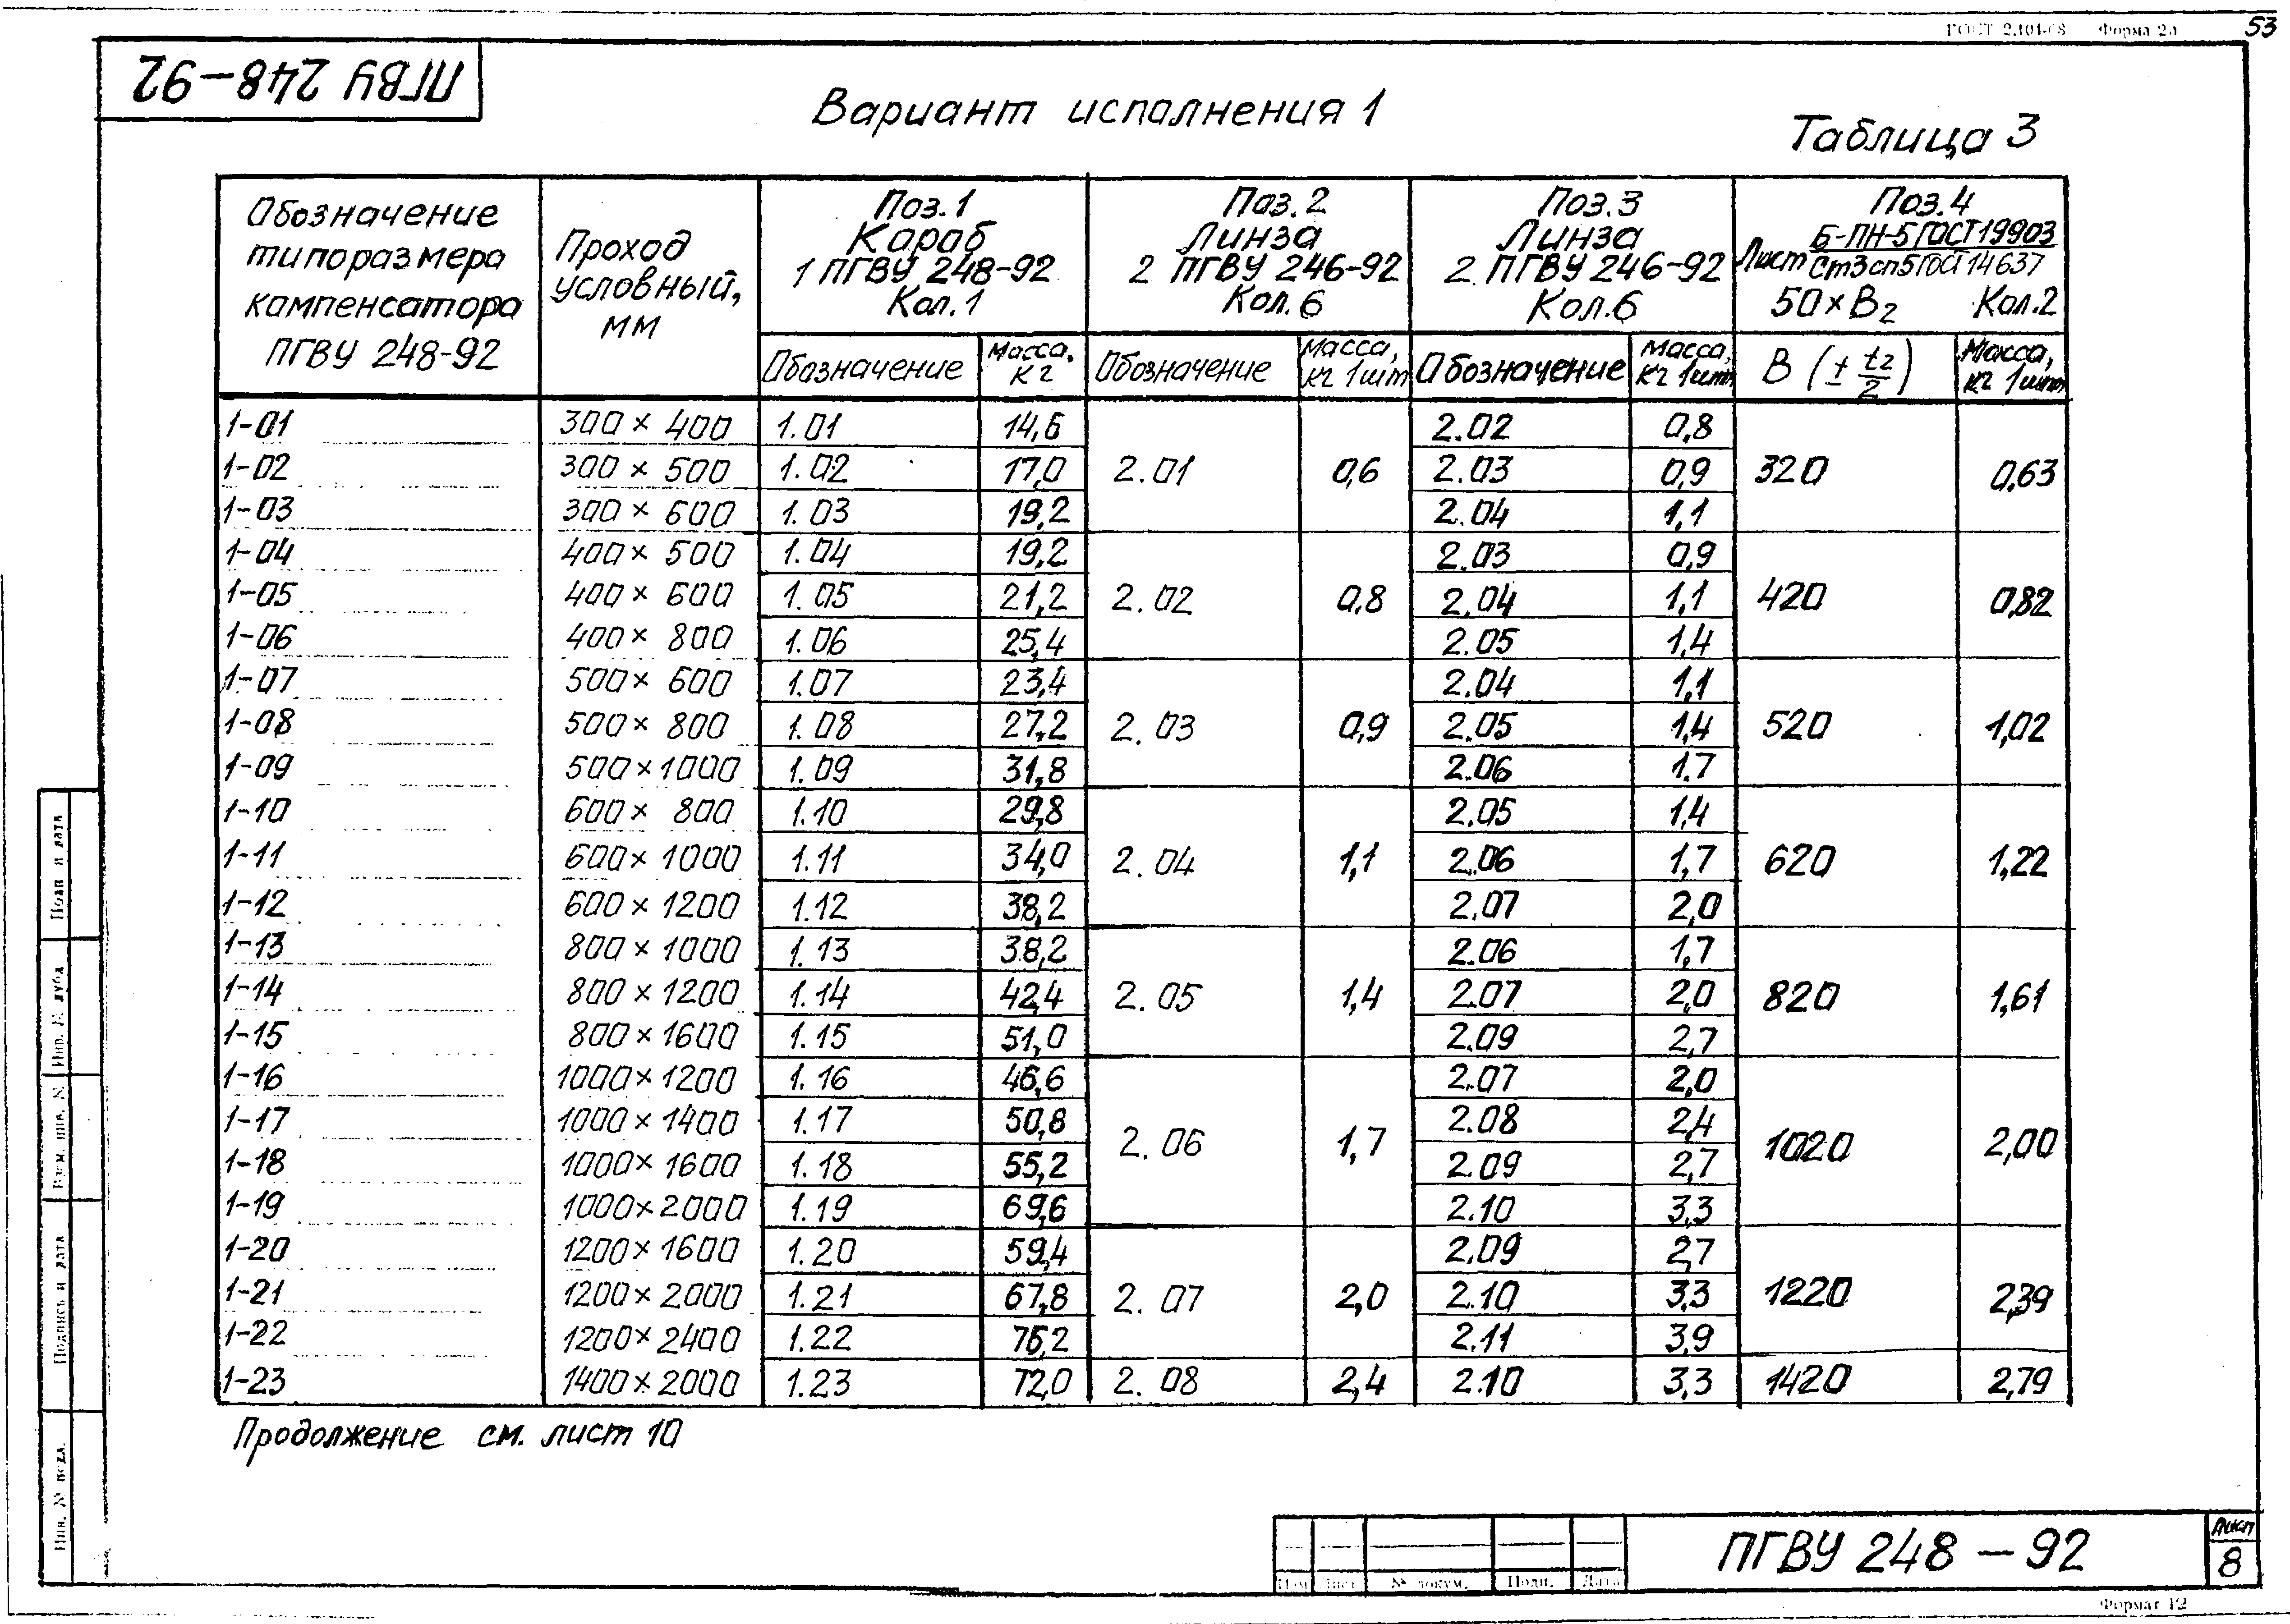 ГОСТ 2.104-68 Форма 2а 53
ПГВУ 248-92
Вариант исполнения 1
Таблица 3
Обозначение типоразмера компенсатора ПГВУ 248-92
Проход условный, мм
Поз.1 Короб 1 ПГВУ 248-92 Кол.1
Поз.2 Линза 2 ПГВУ 246-92 Кол.6
Поз.3 Линза 2 ПГВУ 246-92 Кол.6
Поз.4 Лист Б-ПН-5 ГОСТ 19903 Ст3сп5 ГОСТ 14637 50×В2 Кол.2
Обозначение Масса, кг Обозначение Масса, кг 1шт Обозначение Масса, кг 1шт В (± t2/2) Масса, кг 1шт
1-01 300×400 1.01 14,6 2.02 0,8
1-02 300×500 1.02 17,0 2.01 0,6 2.03 0,9 320 0,63
1-03 300×600 1.03 19,2 2.04 1,1
1-04 400×500 1.04 19,2 2.03 0,9
1-05 400×600 1.05 21,2 2.02 0,8 2.04 1,1 420 0,82
1-06 400×800 1.06 25,4 2.05 1,4
1-07 500×600 1.07 23,4 2.04 1,1
1-08 500×800 1.08 27,2 2.03 0,9 2.05 1,4 520 1,02
1-09 500×1000 1.09 31,8 2.06 1,7
1-10 600×800 1.10 29,8 2.05 1,4
1-11 600×1000 1.11 34,0 2.04 1,1 2.06 1,7 620 1,22
1-12 600×1200 1.12 38,2 2.07 2,0
1-13 800×1000 1.13 38,2 2.06 1,7
1-14 800×1200 1.14 42,4 2.05 1,4 2.07 2,0 820 1,61
1-15 800×1600 1.15 51,0 2.09 2,7
1-16 1000×1200 1.16 46,6 2.07 2,0
1-17 1000×1400 1.17 50,8 2.06 1,7 2.08 2,4 1020 2,00
1-18 1000×1600 1.18 55,2 2.09 2,7
1-19 1000×2000 1.19 69,6 2.10 3,3
1-20 1200×1600 1.20 59,4 2.09 2,7
1-21 1200×2000 1.21 67,8 2.07 2,0 2.10 3,3 1220 2,39
1-22 1200×2400 1.22 76,2 2.11 3,9
1-23 1400×2000 1.23 72,0 2.08 2,4 2.10 3,3 1420 2,79
Продолжение см. лист 10
Подп и дата
Инв. № дубл
Взам. инв. №
Подпись и дата
Инв. № подл.
Изм Лист № докум. Подп. Дата
ПГВУ 248-92
Лист 8
Формат 12